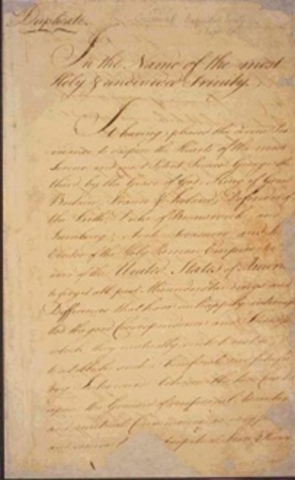 Duplicate.
In the Name of the most
Holy & undivided Trinity.
It having pleased the divine Pro
vidence to dispose the Hearts of the most
Serene and most Potent Prince George the
third, by the Grace of God, King of Great
Britain, France & Ireland, Defender of
the Faith, Duke of Brunswick and
Luneburg, Arch Treasurer, and
Elector of the Holy Roman Empire
of the United States of America
to forget all past Misunderstandings and
Differences that have unhappily interrup
ted the good Correspondence and Friendship
which they mutually wish to restore;
to establish such a beneficial and satisfac
tory Intercourse between the two
upon the Ground of reciprocal
and mutual Convenience as may
and secure to perpetual Peace &